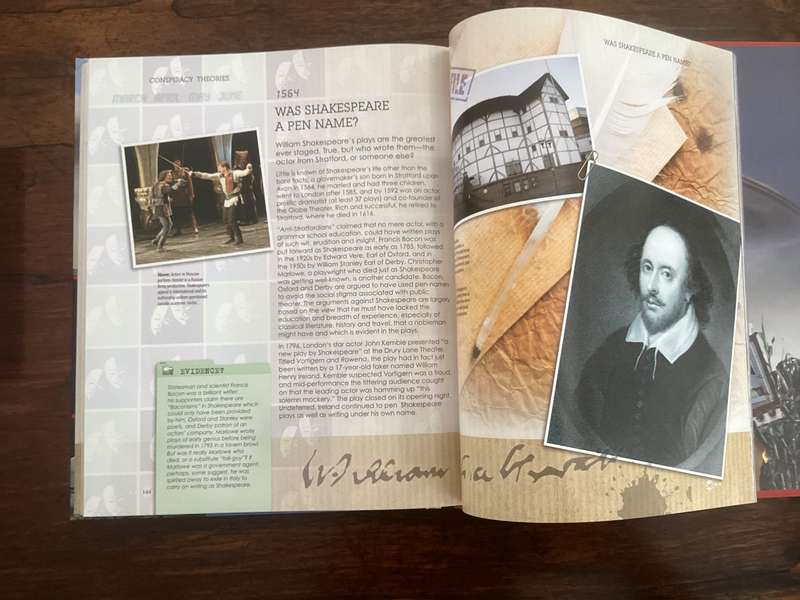 CONSPIRACY THEORIES
MARCH APRIL MAY JUNE
1564
WAS SHAKESPEARE
A PEN NAME?
William Shakespeare's plays are the greatest
ever staged. True, but who wrote them—the
actor from Stratford, or someone else?
Little is known of Shakespeare's life other than the
bare facts: a glovemaker's son born in Stratford upon
Avon in 1564, he married and had three children,
went to London after 1585, and by 1592 was an actor,
prolific dramatist (at least 37 plays) and co-founder of
the Globe Theater. Rich and successful, he retired to
Stratford, where he died in 1616.
"Anti-Stratfordians" claimed that no mere actor, with a
grammar school education, could have written plays
of such wit, erudition and insight. Francis Bacon was
put forward as Shakespeare as early as 1785, followed
in the 1920s by Edward Vere, Earl of Oxford, and in
the 1950s by William Stanley Earl of Derby. Christopher
Marlowe, a playwright who died just as Shakespeare
was getting well-known, is another candidate. Bacon,
Oxford and Derby are argued to have used pen-names
to avoid the social stigma associated with public
theater. The arguments against Shakespeare are largely
based on the view that he must have lacked the
education and breadth of experience, especially of
classical literature, history and travel, that a nobleman
might have and which is evident in the plays.
In 1796, London's star actor John Kemble presented "a
new play by Shakespeare" at the Drury Lane Theater.
Titled Vortigern and Rowena, the play had in fact just
been written by a 17-year-old faker named William
Henry Ireland. Kemble suspected Vortigern was a fraud,
and mid-performance the tittering audience caught
on that the leading actor was hamming up "this
solemn mockery." The play closed on its opening night.
Undeterred, Ireland continued to pen Shakespeare
plays as well as writing under his own name.
Above: Actors in Moscow
perform Hamlet in a Russian
EVIDENCE?
Statesman and scientist Francis
Bacon was a brilliant writer;
his supporters claim there are
"Baconisms" in Shakespeare which
could only have been provided
by him. Oxford and Stanley were
poets, and Derby patron of an
actors' company. Marlowe wrote
plays of early genius before being
murdered in 1793 in a tavern brawl.
But was it really Marlowe who
died, or a substitute "fall-guy"? If
Marlowe was a government agent
perhaps, some suggest, he was
spirited away to exile in Italy to
carry on writing as Shakespeare.
144
William
WAS SHAKESPEARE A PEN NAME?